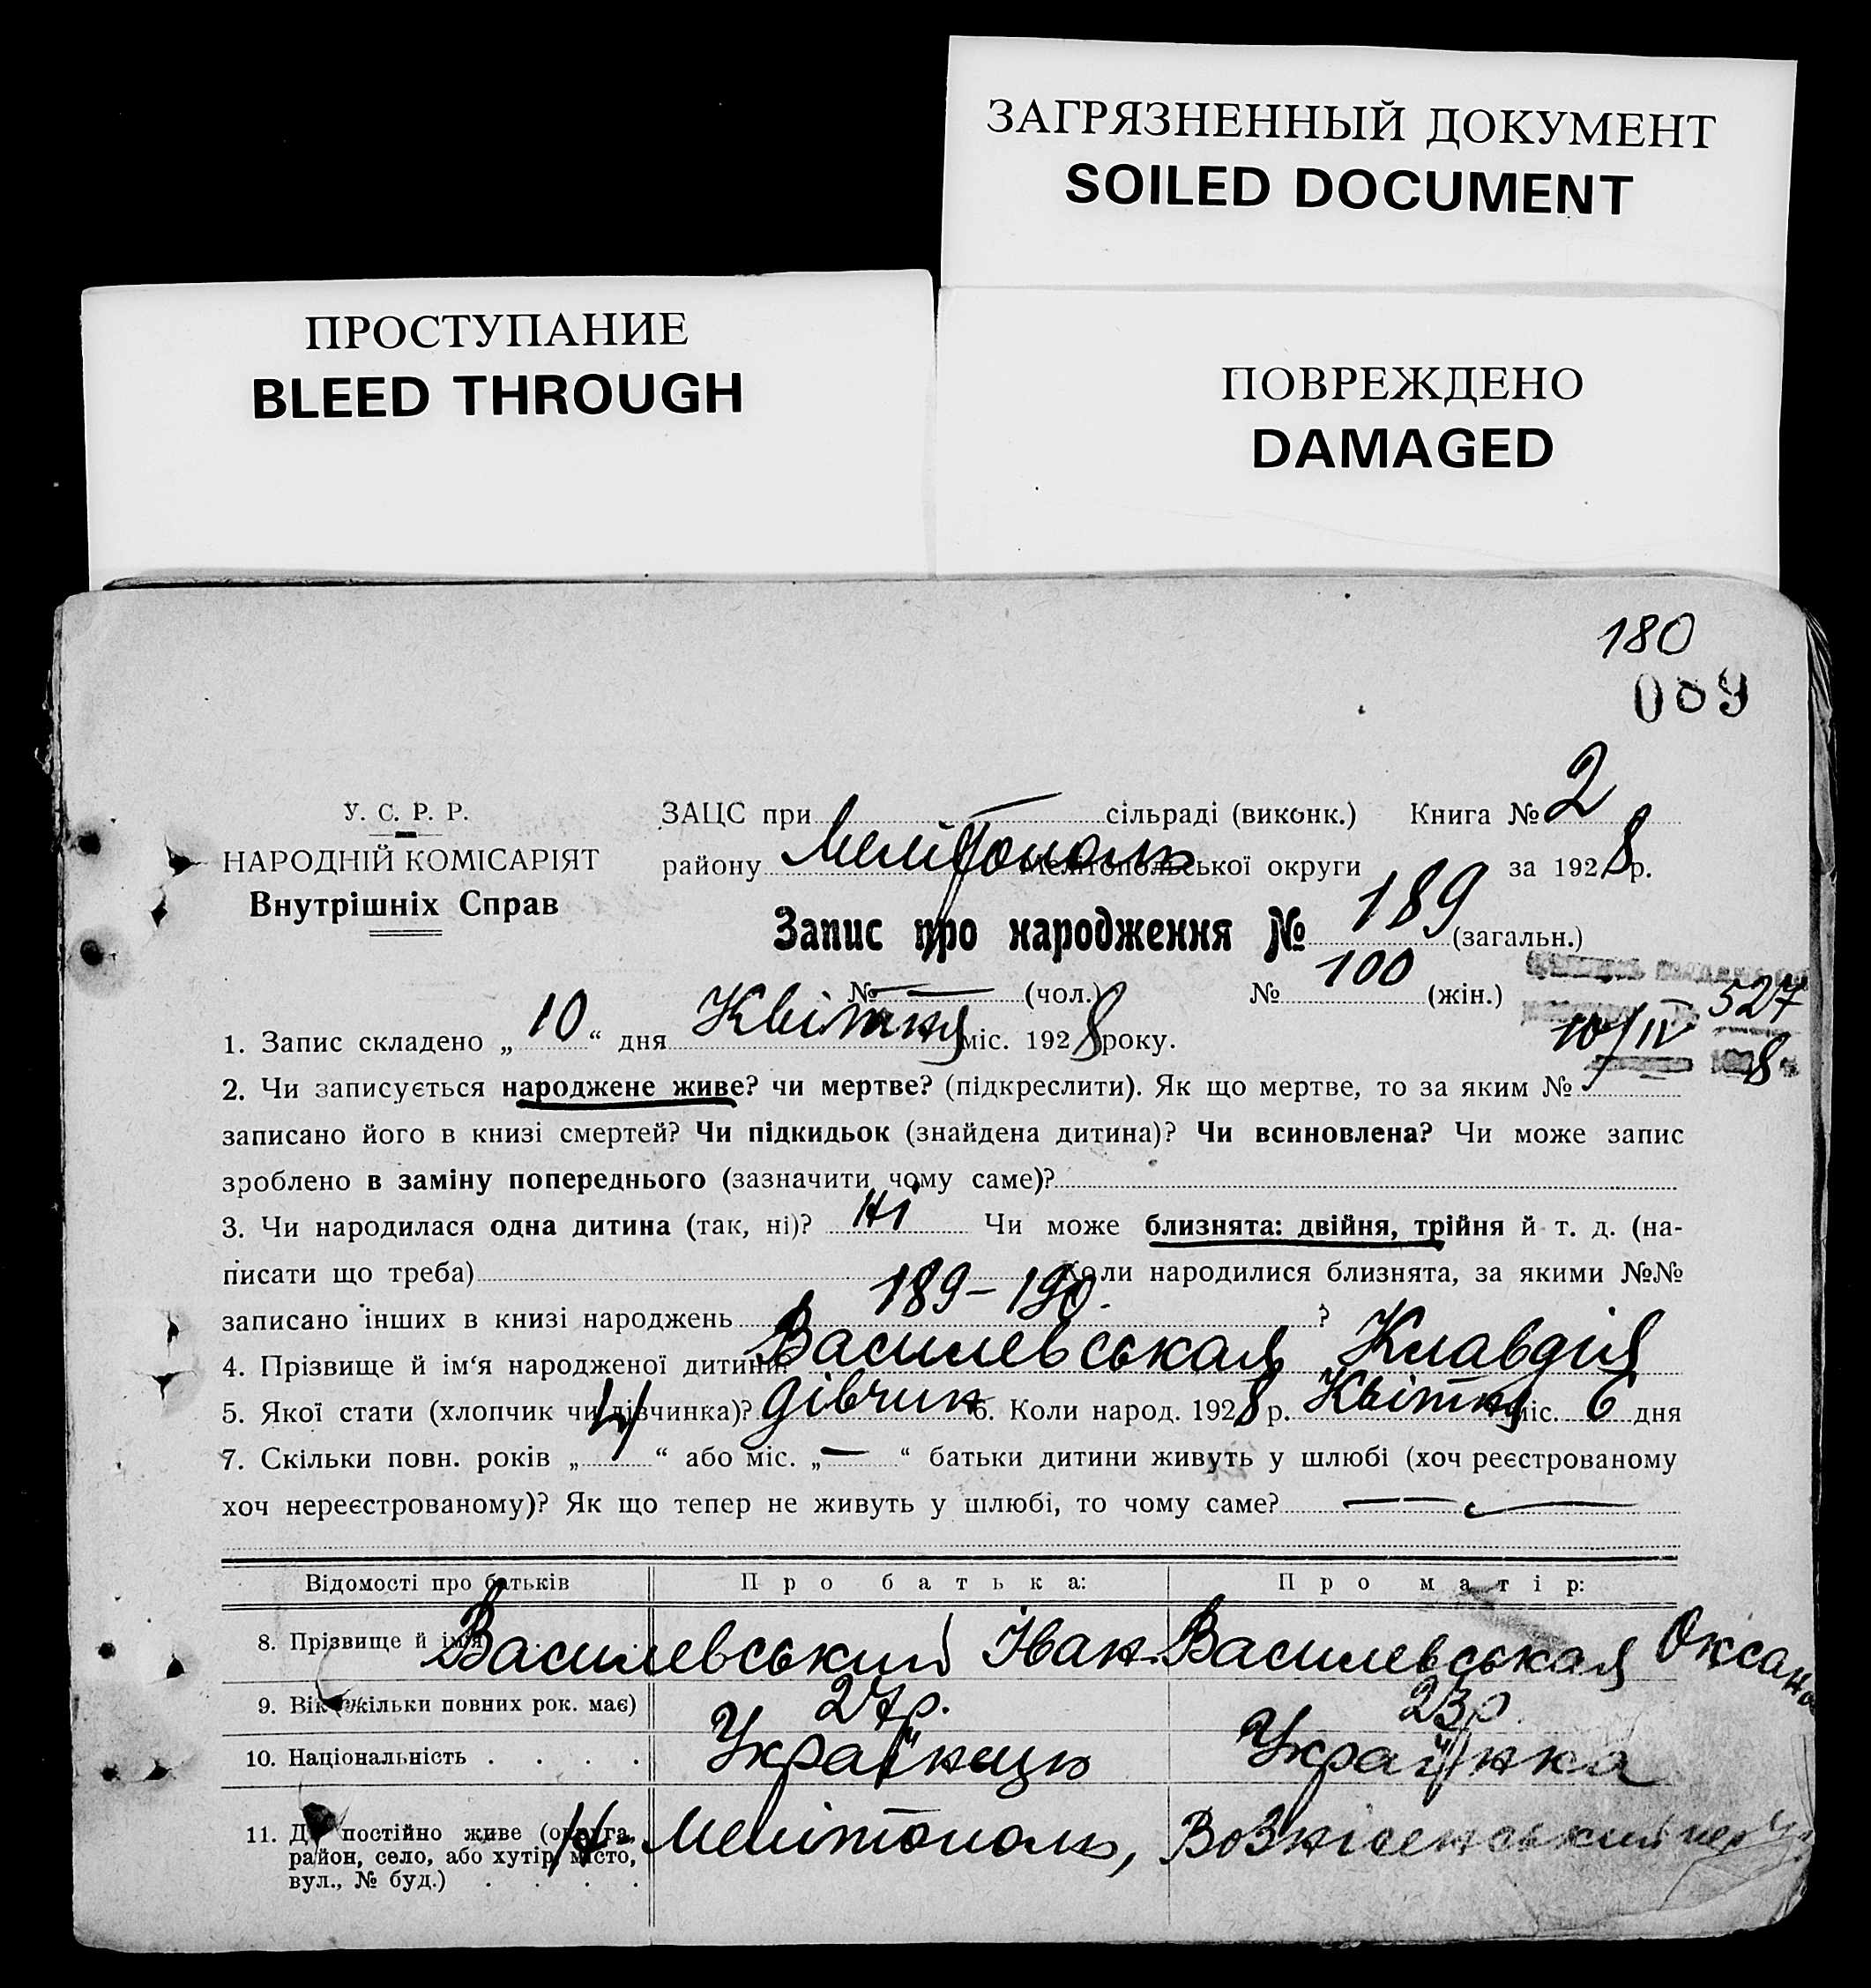 ЗАГРЯЗНЕННЫЙ ДОКУМЕНТ
SOILED DOCUMENT
ПРОСТУПАНИЕ
BLEED THROUGH
ПОВРЕЖДЕНО
DAMAGED
180
089
У. С. Р. Р.
НАРОДНІЙ КОМІСАРІЯТ
Внутрішніх Справ
ЗАЦС при — сільраді (виконк.) Книга № 2
району Мелітополь Мелітопольської округи за 1928 р.
Запис про народження № 189 (загальн.)
№ — (чол.) № 100 (жін.)
527
10/IV
8
1. Запис складено „ 10 “ дня Квітня міс. 1928 року.
2. Чи записується народжене живе? чи мертве? (підкреслити). Як що мертве, то за яким №
записано його в книзі смертей? Чи підкидьок (знайдена дитина)? Чи всиновлена? Чи може запис
зроблено в заміну попереднього (зазначити чому саме)?
3. Чи народилася одна дитина (так, ні)? ні Чи може близнята: двійня, трійня й т. д. (на-
писати що треба) Коли народилися близнята, за якими №№
записано інших в книзі народжень 189–190. ?
4. Прізвище й ім‘я народженої дитини: Василевськая Клавдія
5. Якої стати (хлопчик чи дівчинка)? дівчин 6. Коли народ. 1928 р. Квітня міс. 6 дня
7. Скільки повн. років „ 4 “ або міс. „ — “ батьки дитини живуть у шлюбі (хоч реєстрованому
хоч нереєстрованому)? Як що тепер не живуть у шлюбі, то чому саме? —
Відомості про батьків Про батька: Про матір:
8. Прізвище й ім'я Василевський Іван Василевськая Оксана
9. Вік (скільки повних рок. має) 27 р. 23 р.
10. Національність . . . . Українець Українка
11. Де постійно живе (округа, район, село, або хутір, місто, вул., № буд.) . . . . Мелітополь, Вознісенський